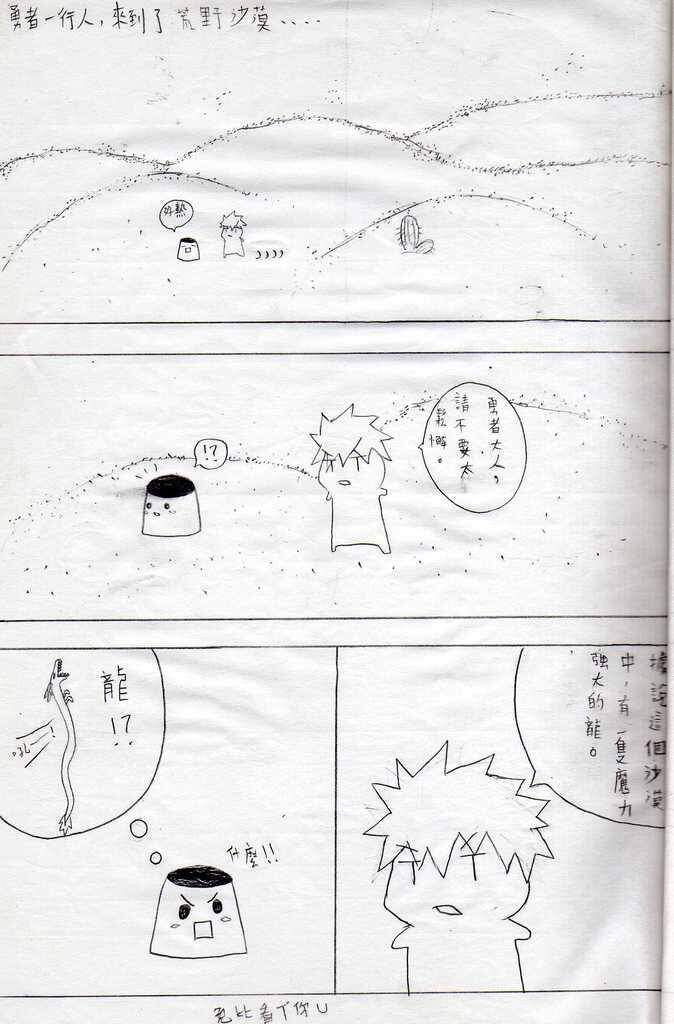 勇者一行人，來到了荒野沙漠.....
好熱
勇者大人，
請不要太
鬆懈。
!?
據說這個沙漠
中，有一隻魔力
強大的龍。
龍!?
吼
什麼!!